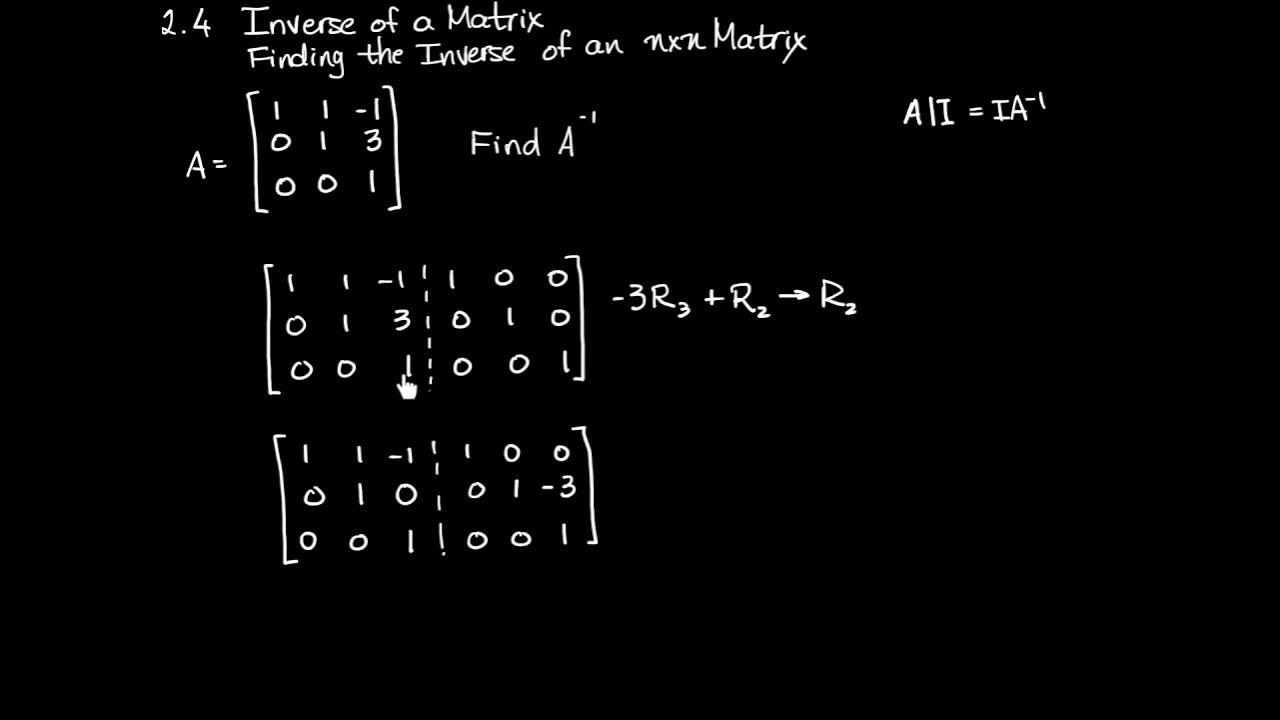 2.4 Inverse of a Matrix
Finding the Inverse of an nxn Matrix
A = [ 1 1 -1
0 1 3
0 0 1 ]
Find A⁻¹
A|I = IA⁻¹
[ 1 1 -1 ¦ 1 0 0
0 1 3 ¦ 0 1 0
0 0 1 ¦ 0 0 1 ]
-3R₃ + R₂ → R₂
[ 1 1 -1 ¦ 1 0 0
0 1 0 ¦ 0 1 -3
0 0 1 ¦ 0 0 1 ]